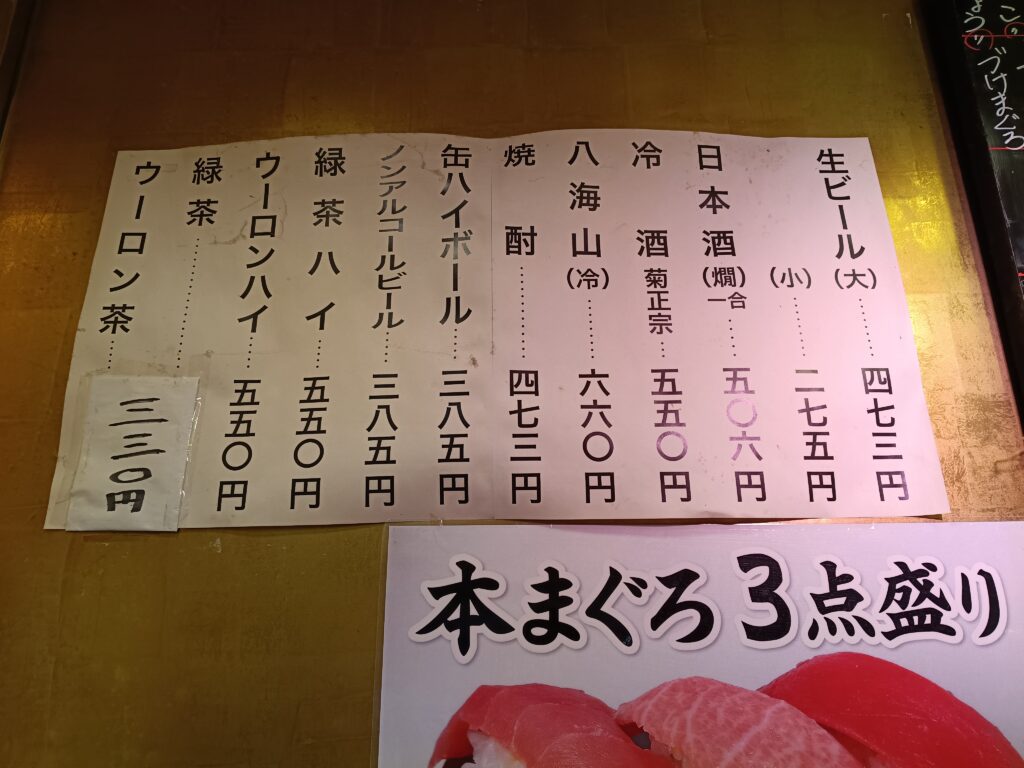 生ビール(大)……四七三円
(小)……二七五円
日本酒(燗)一合……五〇六円
冷酒 菊正宗……五五〇円
八海山(冷)……六六〇円
焼酎……四七三円
缶ハイボール……三八五円
ノンアルコールビール……三八五円
緑茶ハイ……五五〇円
ウーロンハイ……五五〇円
緑茶……
ウーロン茶……
三三〇円
本まぐろ3点盛り
づけまぐろ